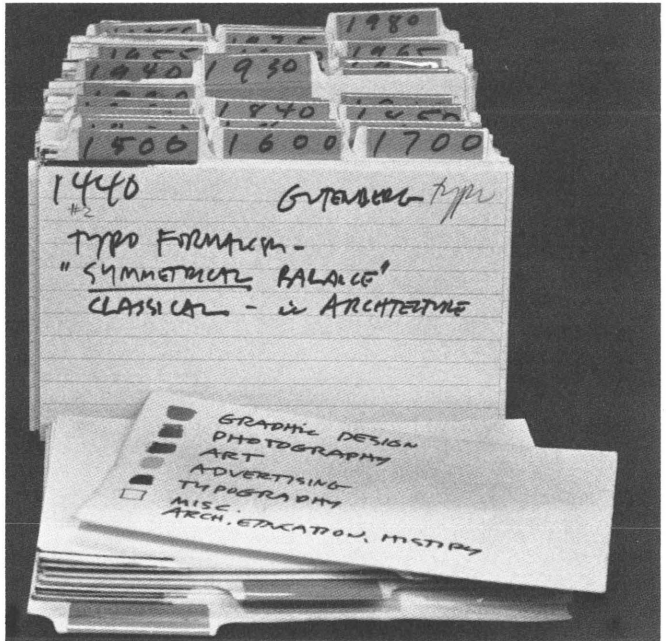 1980
1965
1940 1930
1840
1500 1600 1700
1440 GUTENBERG type
#2
TYPO FORMALISM -
"SYMMETRICAL BALANCE"
CLASSICAL - in ARCHITECTURE
GRAPHIC DESIGN
PHOTOGRAPHY
ART
ADVERTISING
TYPOGRAPHY
MISC.
ARCH, EDUCATION, HISTORY